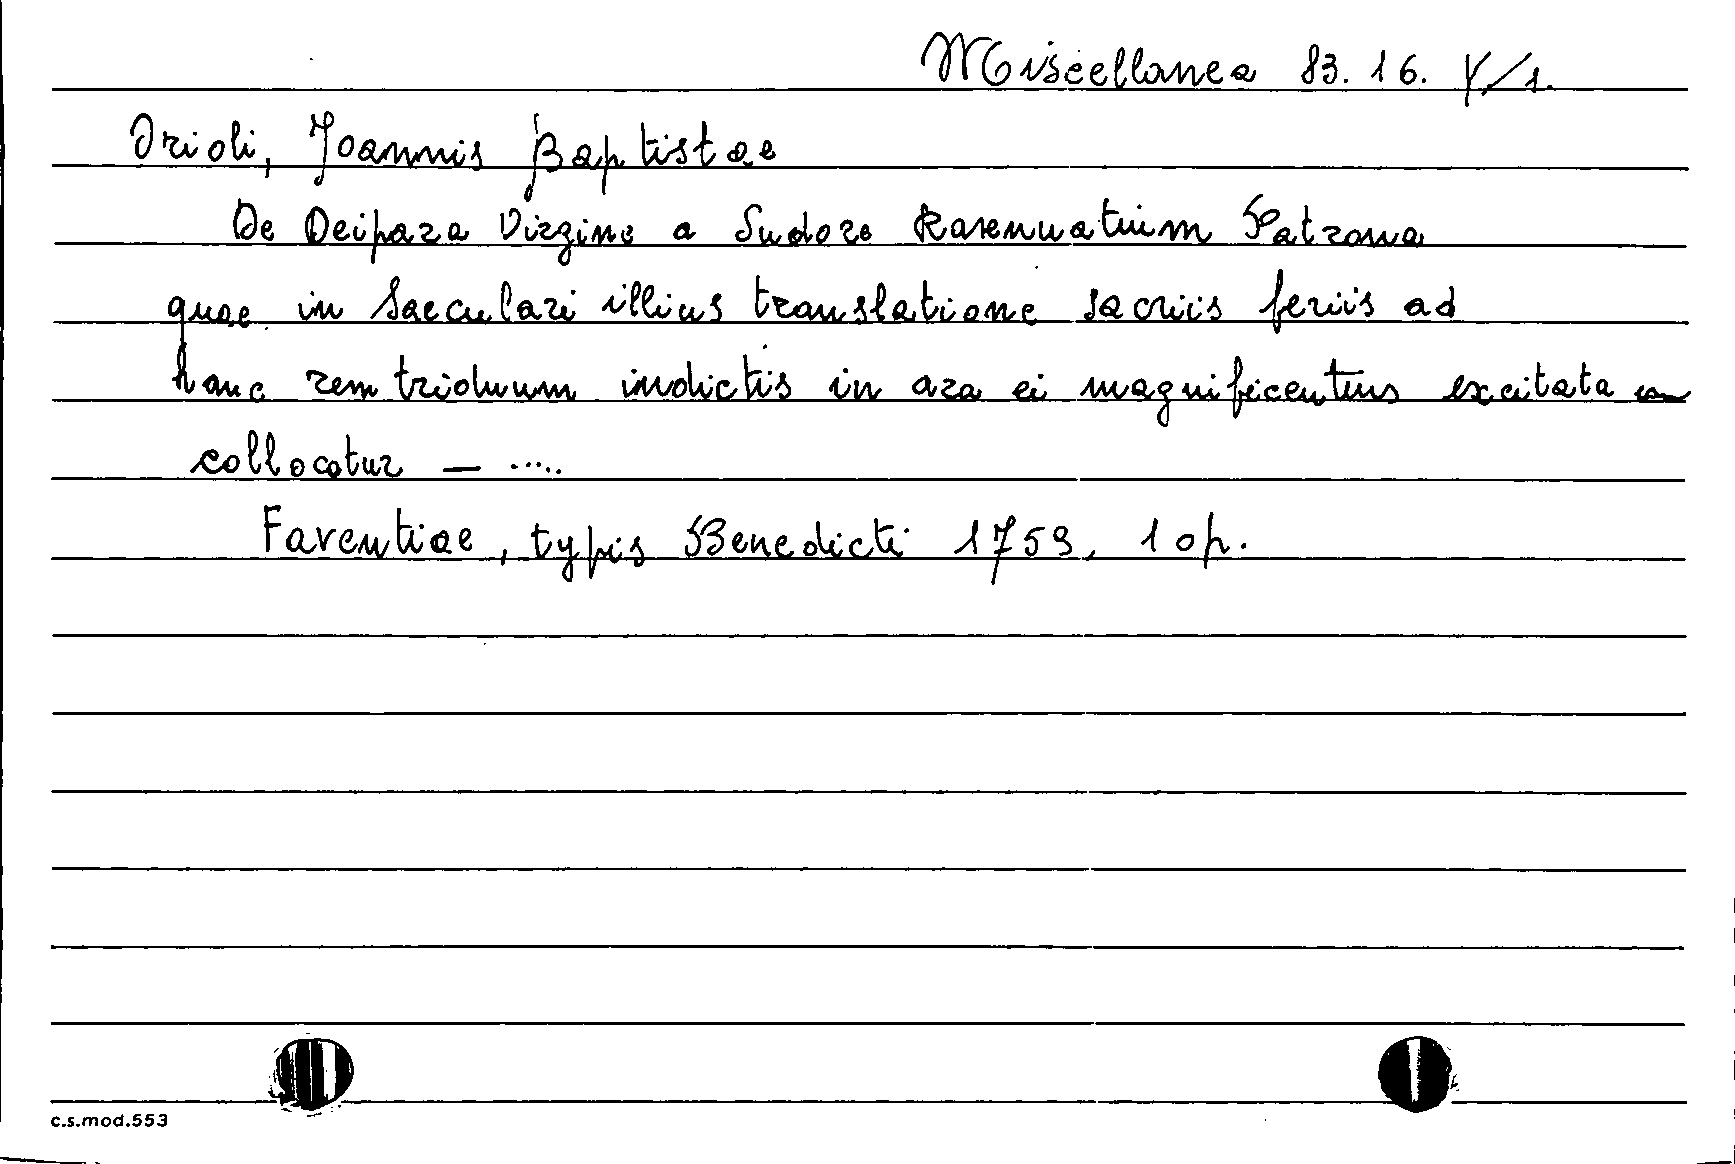 Miscellanea 83. 16. Y/1.
Orioli, Joannis Baptistae
De Deipara Virgine a Sudore Ravennatuum Patrona
quae in Saeculari illius translatione sacriis feriis ad
hanc rem triduum indictis in ara ei magnificentius excitata
collocatur — .....
Faventiae, typis Benedicti 1759, 1 op.
c.s.mod.553